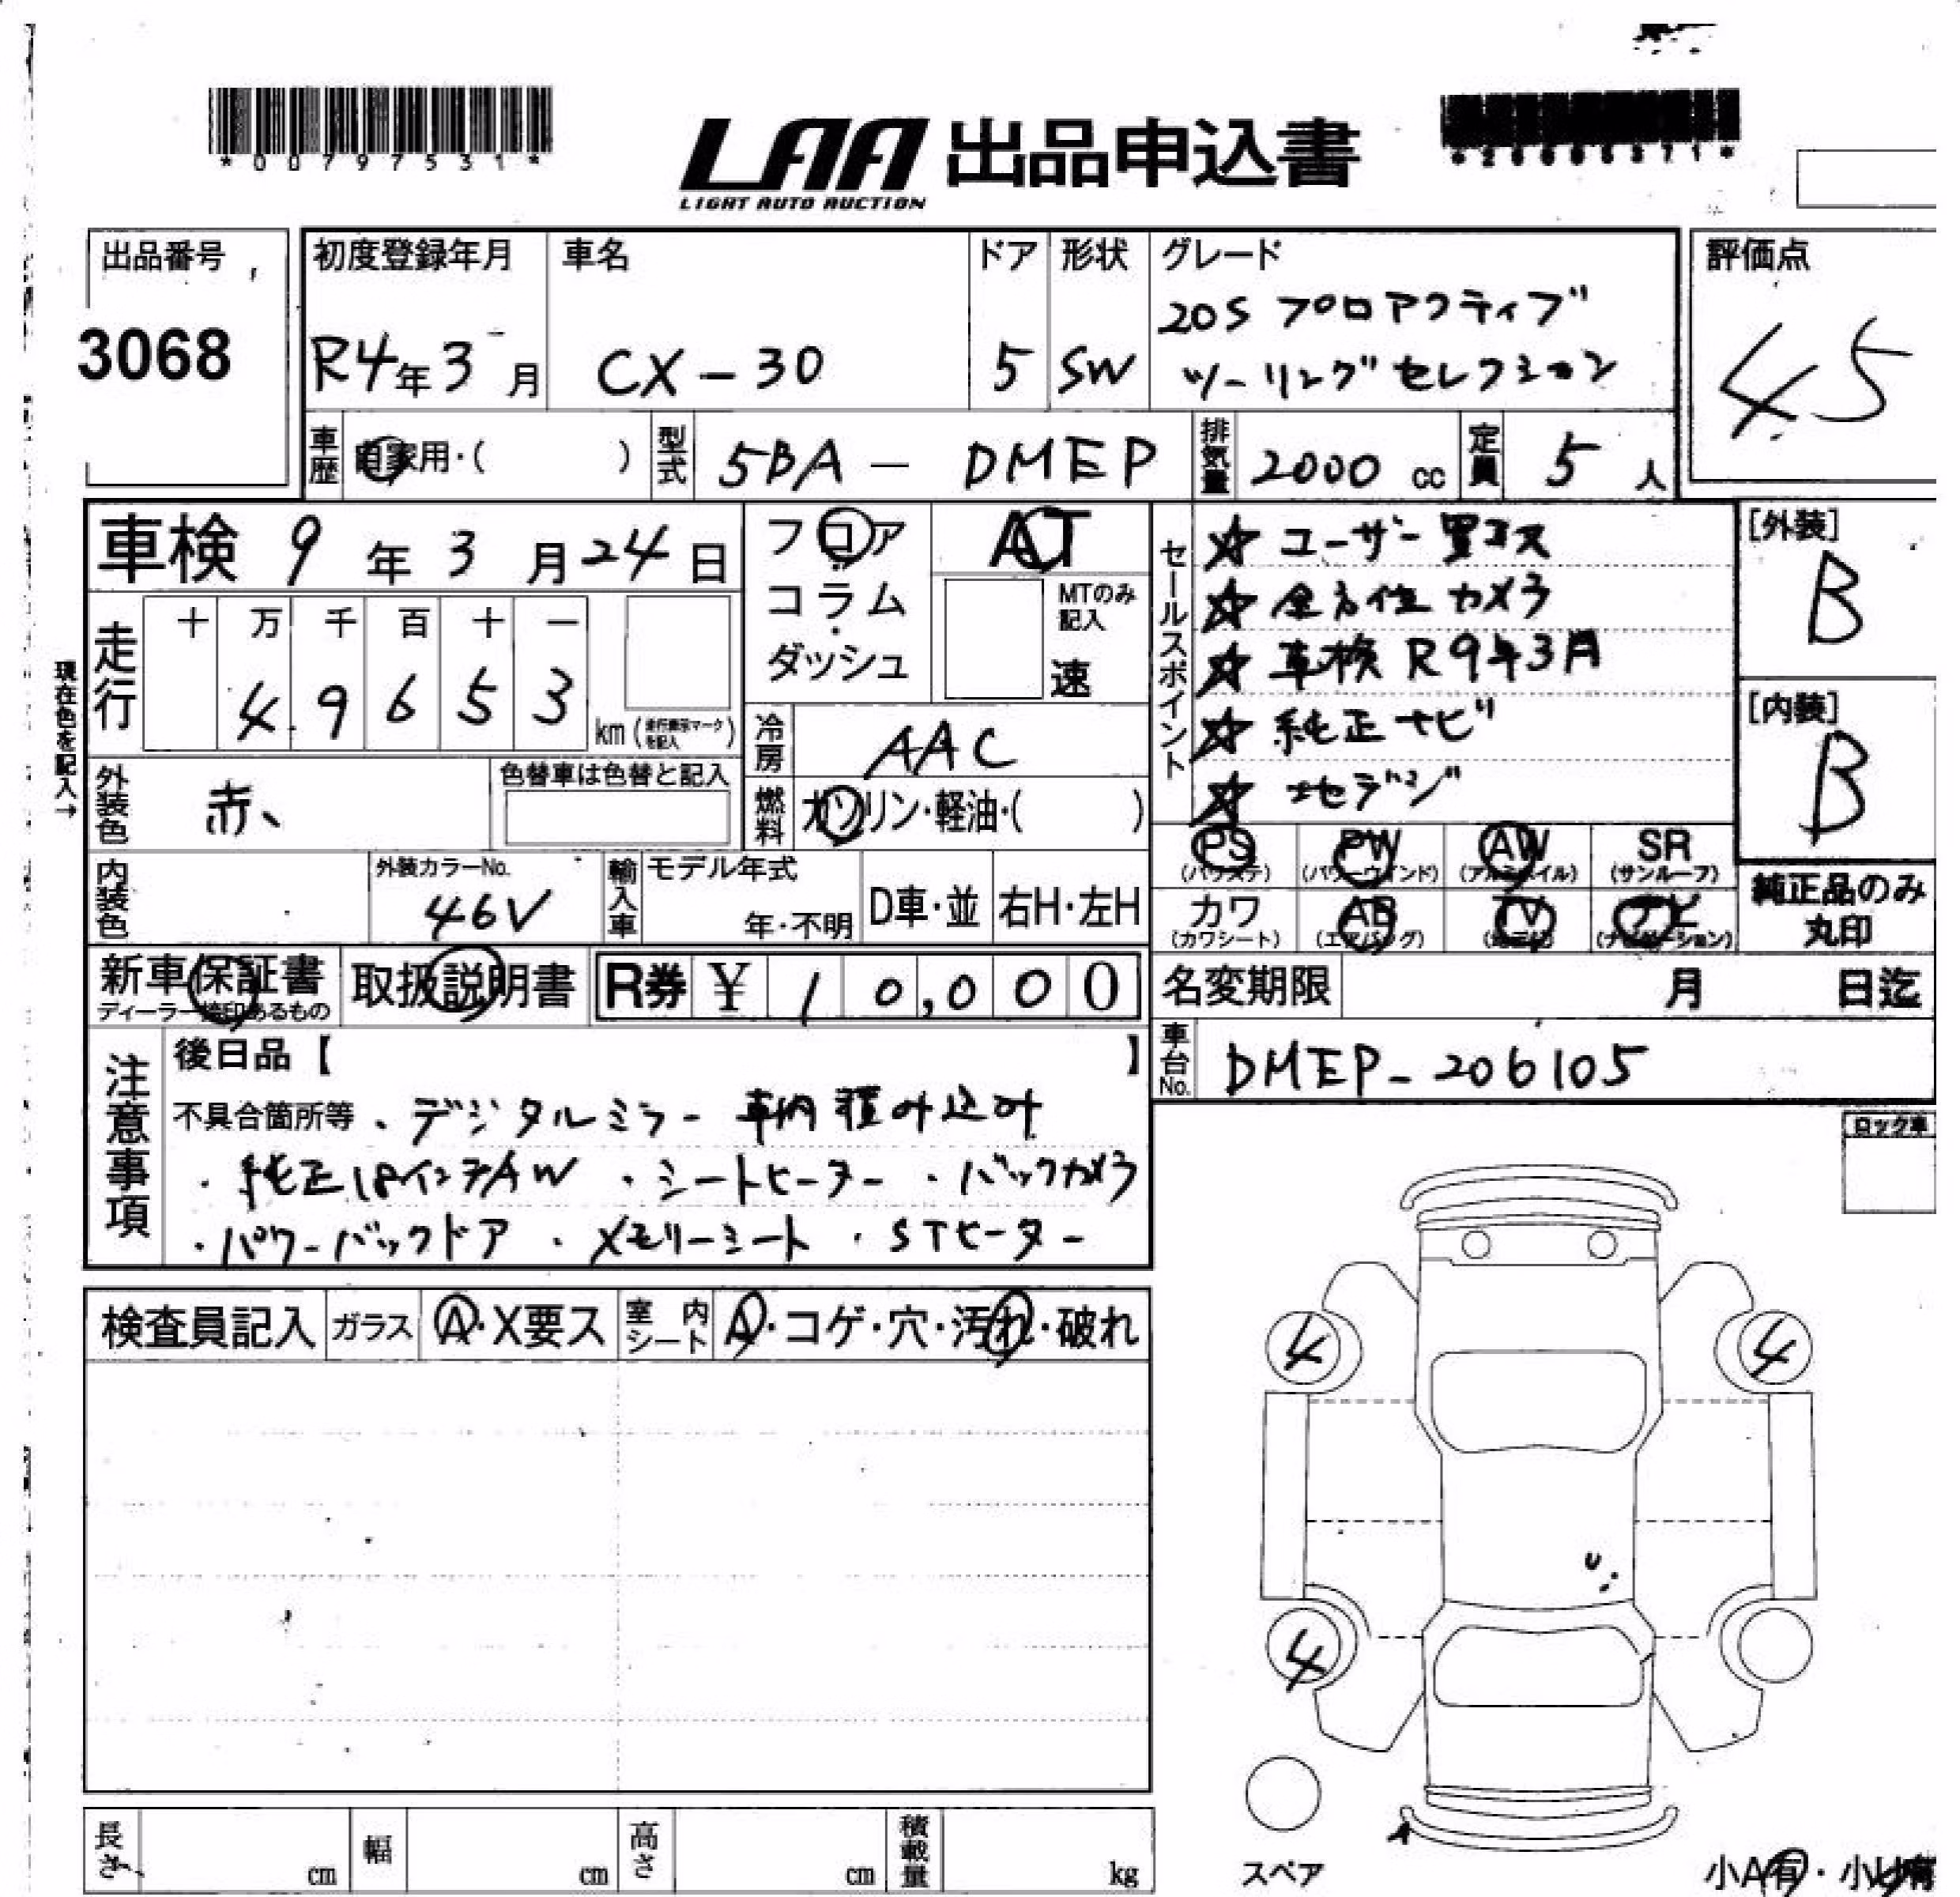 *00797531*
LAA 出品申込書
LIGHT AUTO AUCTION
出品番号
3068
初度登録年月
R4年3月
車名
CX-30
ドア
5
形状
SW
グレード
20S プロアクティブ
ツーリングセレクション
評価点
45
車歴
自家用・( )
型式
5BA - DMEP
排気量
2000 cc
定員
5 人
車検 9年3月24日
フロア
コラム
ダッシュ
AT
MTのみ記入
速
セールスポイント
☆ ユーザー買コス
☆ 全方位カメラ
☆ 車検R9年3月
☆ 純正ナビ
☆ 地デジ
[外装]
B
[内装]
B
現在色を記入→
走行
十 万 千 百 十 一
4 9 6 5 3
km (走行表示マークを記入)
冷房
AAC
外装色
赤
色替車は色替と記入
燃料
ガソリン・軽油・( )
PS (パワステ)
PW (パワーウインド)
AW (アルミホイル)
SR (サンルーフ)
カワ (カワシート)
AB (エアバッグ)
TV
ナビ (ナビゲーション)
純正品のみ
丸印
内装色
外装カラーNo.
46V
輸入車
モデル年式
年・不明
D車・並
右H・左H
新車保証書
ディーラー捺印あるもの
取扱説明書
R券 ¥ 10,000
名変期限 月 日迄
車台No.
DMEP-206105
注意事項
後日品【 】
不具合箇所等・デジタルミラー 車内積み込み
・純正18インチAW ・シートヒーター ・バックカメラ
・パワーバックドア ・メモリーシート ・STヒーター
ロック車
検査員記入
ガラス
A・X要ス
室内シート
A・コゲ・穴・汚れ・破れ
4 4
U
4
A
スペア
小A有・小U有
長さ cm
幅 cm
高さ cm
積載量 kg